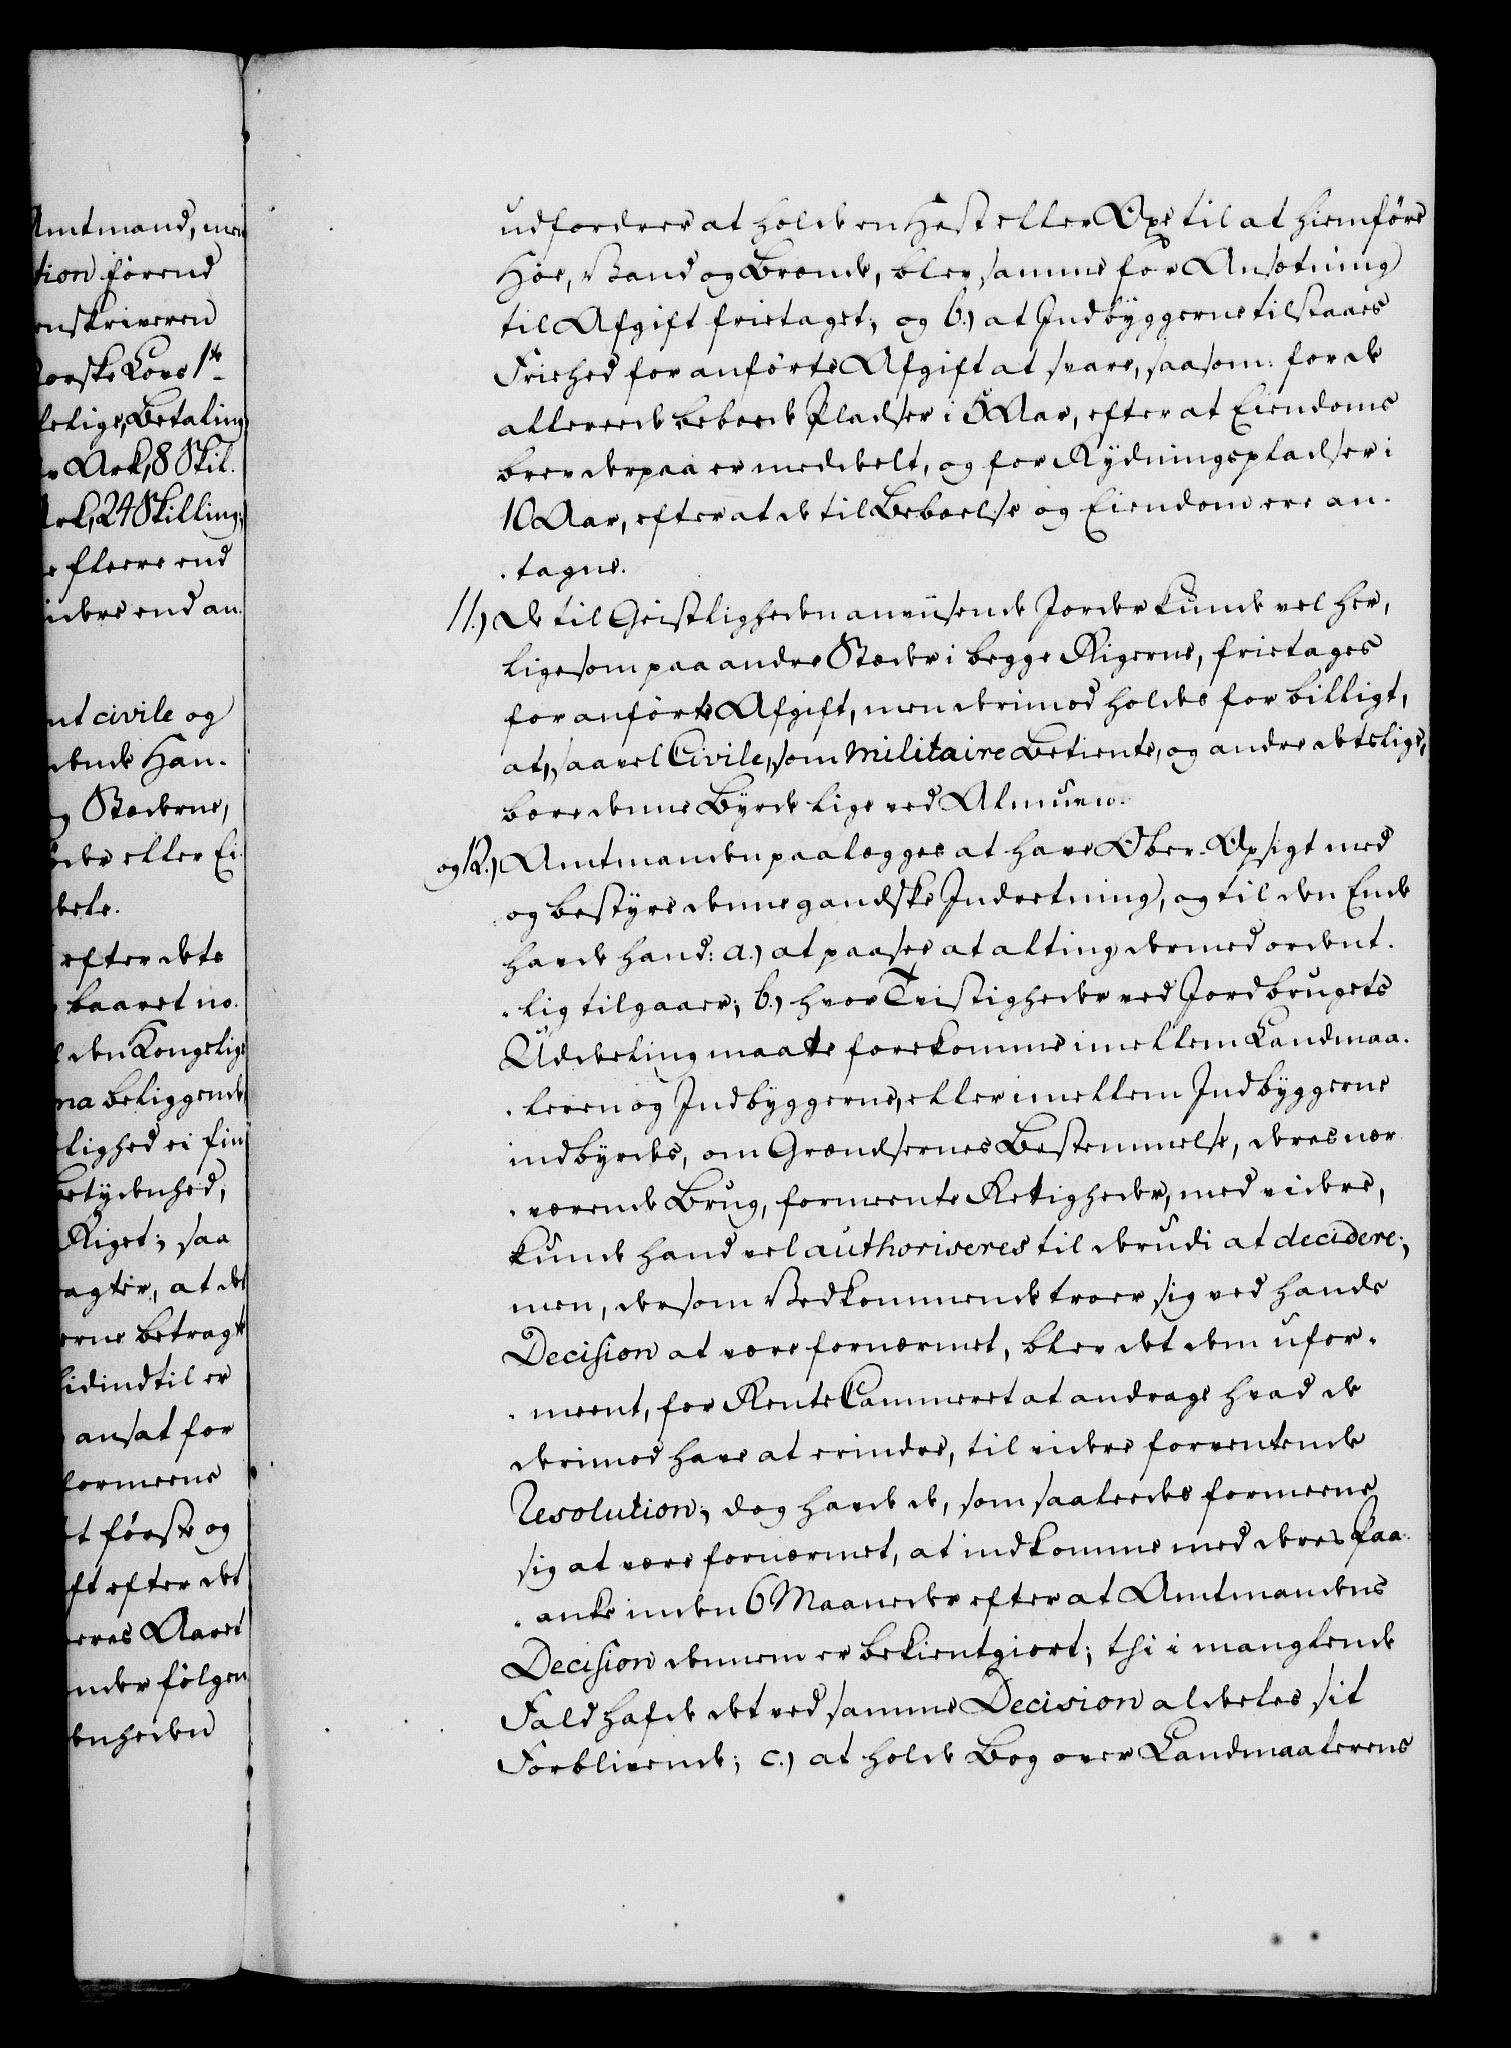 Amtmand, men
tion førend
enskriveren
Norske Lovs 1ste
lelige, Betaling,
Ark, 8 Skil.
Ark, 24 Skilling;
fleere end
videre end an-
civile og
dende Han-
og Stæderne,
eller Ei-
deele.
efter dets
baaret no-
den Kongelige
beliggende
lighed ei fin-
betydenhed,
Riget; saa
agter, at det
erne betragt
hidindtil er
ansat for
formeene
første og
efter det
Aaret
under følgen
enheden
udfordrer at holde en Hest eller Oxe til at hiemføre
Høe, Vand og Brænde, blev samme for Ansætning
til Afgift frietaget; og b.) at Indbyggerne tilstaaes
Friehed for anførte Afgift at svare, saasom: for de
allereede beboede Pladser i 5 Aar, efter at Eiendoms
brev derpaa er meddeelt, og for Rydningspladser i
10 Aar, efter at de til Beboelse og Eiendom ere an-
-tagne.
11.) De til Geistligheden anviisende Jorder kunde vel her,
ligesom paa andre Stæder i begge Rigerne, frietages
for anførte Afgift, men derimod holdes for billigt,
at, saavel Civile, som Militaire Betiente, og andre detslige,
bære denne Byrde lige ved Almuen.
og 12.) Amtmanden paalægges at have Ober-Opsigt med
og bestyre denne gandske Indretning, og til den Ende
havde hand: a.) at paasee at alting dermed ordent-
-lig tilgaaer; b.) hvor Tvistigheder ved Jordbrugets
Uddeeling maatte forekomme imellem Landmaa-
-leren og Indbyggerne, eller imellem Indbyggerne
indbyrdes, om Grændsernes Bestemmelse, deres nær-
-værende Brug, formeente Rettigheder, med videre,
kunde hand vel authoriseres til derudi at decidere;
men, dersom Vedkommende troer sig ved hands
Decision at være fornærmet, blev det dem ufor-
-meent, for RenteCammeret at andrage hvad de
derimod have at erindre, til videre forventende
Resolution; dog havde de, som saaledes formeene
sig at være fornærmet, at indkomme med deres Paa-
-anke inden 6 Maaneder efter at Amtmandens
Decision dennem er bekientgiort; thi i manglende
Fald hafde det ved samme Decision aldeles sit
Forblivende; c.) at holde Bog over Landmaalerens